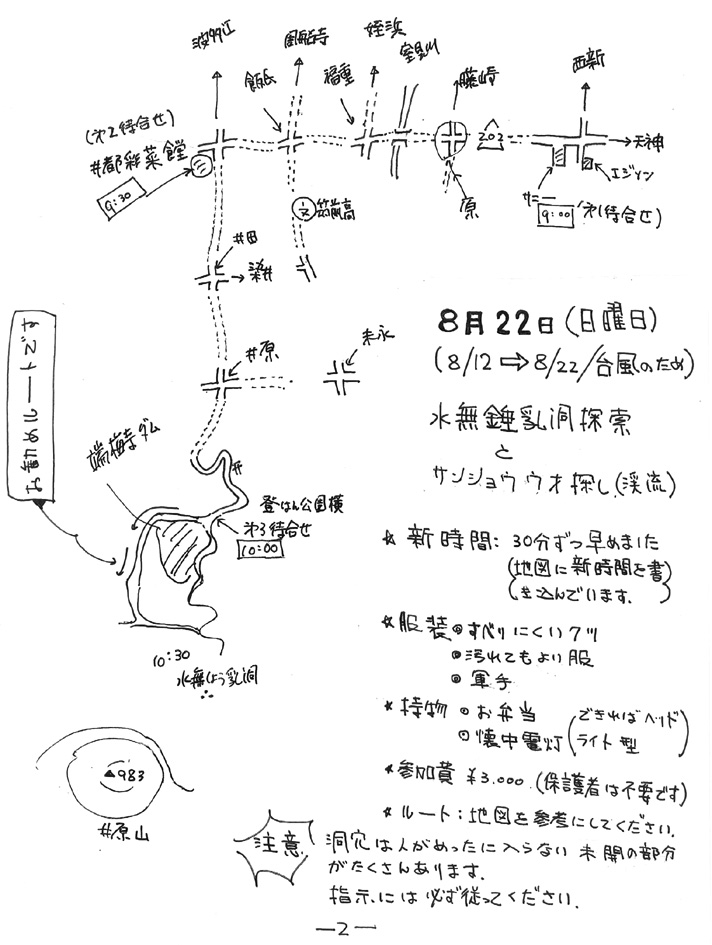 波多江
周船寺
姪浜
室見川
飯氏
福重
藤崎
西新
(第2待合せ)
井都彩菜館
9:30
202
→天神
エジソン
原
サニー
9:00
第1待合せ)
文 筑前高
井田
染井
8月22日(日曜日)
(8/12⇒8/22/台風のため)
井原
末永
水無鍾乳洞探索
と
サンショウウオ探し(渓流)
お勧めルートです
瑞梅寺ダム
登はん公園横
第3待合せ
10:00
★新時間:30分ずつ早めました
(地図に新時間を書)
(き込んでいます.)
★服装 ◎すべりにくいクツ
◎汚れてもよい服
◎軍手
10:30
水無しょう乳洞
∴
★持物 ◎お弁当
◎懐中電灯(できればヘッドライト型)
▲983
井原山
★参加費 ¥3.000.(保護者は不要です)
★ルート:地図を参考にしてください.
注意
洞穴は人がめったに入らない未開の部分
がたくさんあります.
指示には必ず従ってください.
—2—